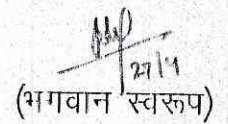 27/4
(भगवान स्वरूप)